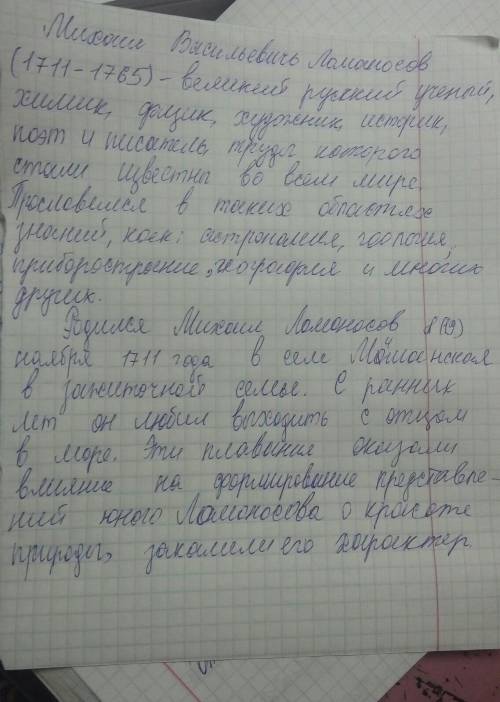 Михаил Васильевичь Ломоносов
(1711-1765) - великий русский ученый,
химик, физик, художник, историк,
поэт и писатель, труды которого
стали известны во всем мире.
Прославился в таких областях
знаний, как: астрономия, геология,
приборостроение, география и многих
других.
Родился Михаил Ломоносов 8(19)
ноября 1711 года в селе
в зажиточной семье. С ранних
лет он любил выходить с отцом
в море. Эти плавания оказали
влияние на формирование представле-
ний юного Ломоносова о красоте
природы, закалили его характер.